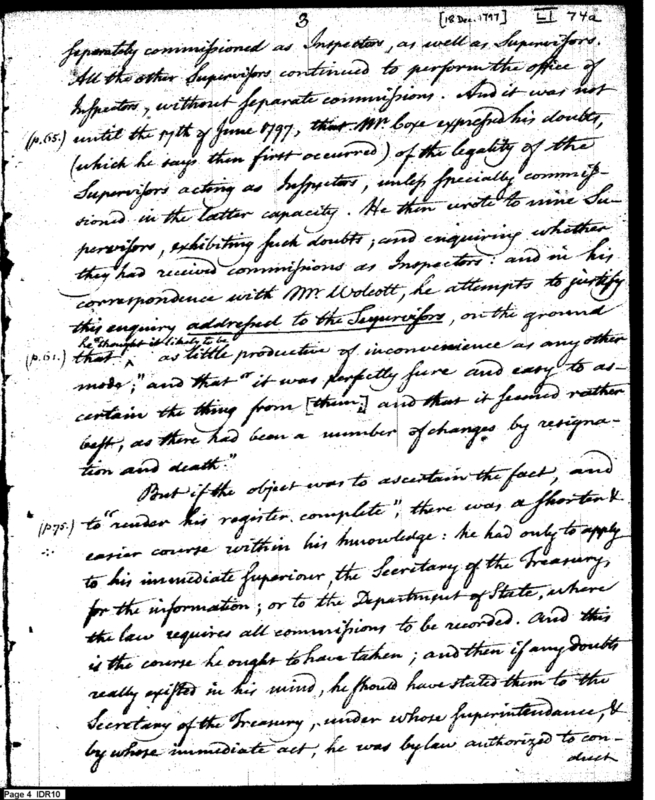 3 [18 Dec. 1797] LI 74a
separately commissioned as Inspectors, as well as Supervisors.
All the other Supervisors continued to perform the office of
Inspectors, without separate commissions. And it was not
(p.65.) until the 17th of June 1797, that Mr. Coxe expressed his doubts,
(which he says then first occurred) of the legality of the
Supervisors acting as Inspectors, unless specially commis-
sioned in the latter capacity. He then wrote to nine Su-
pervisors, exhibiting such doubts; and enquiring whether
they had received commissions as Inspectors: and in his
correspondence with Mr. Wolcott, he attempts to justify
this enquiry addressed to the Supervisors, on the ground
he "thought it likely to be
(p.61.) that ^ as little productive of inconvenience as any other
mode;" and that "it was perfectly sure and easy to as-
certain the thing from [them;] and that it seemed rather
best, as there had been a number of changes by resigna-
tion and death."
But if the object was to ascertain the fact, and
(p.75.) to "render his register complete", there was a shorter &
easier course within his knowledge: he had only to apply
to his immediate superiour, the Secretary of the Treasury,
for the information; or to the Department of State, where
the law requires all commissions to be recorded. And this
is the course he ought to have taken; and then if any doubts
really existed in his mind, he should have stated them to the
Secretary of the Treasury, under whose superintendance, &
by whose immediate act, he was by law authorized to con-
duct
Page 4 IDR10